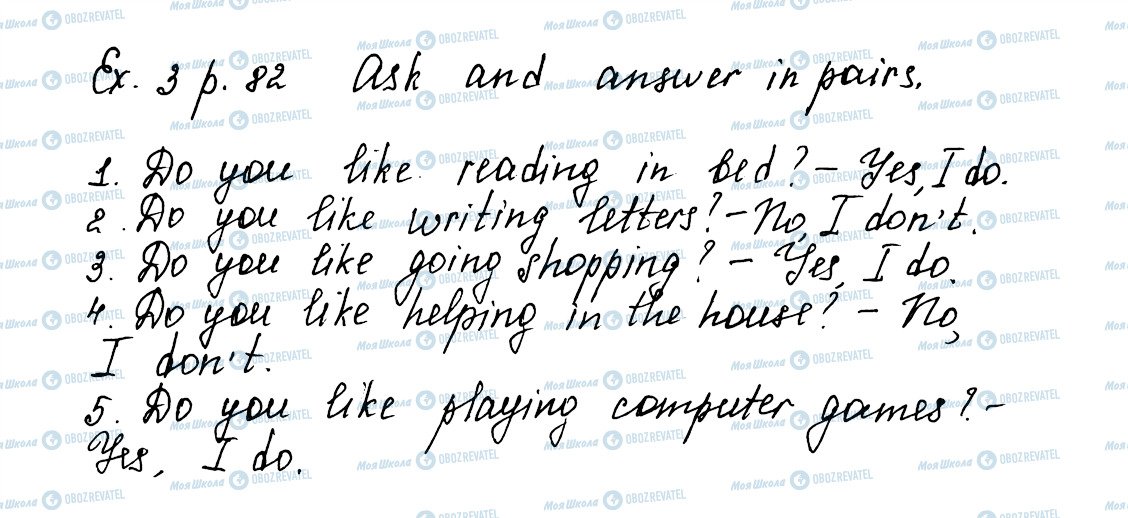 Ex. 3 p. 82 Ask and answer in pairs.
1. Do you like reading in bed? – Yes, I do.
2. Do you like writing letters? – No, I don't.
3. Do you like going shopping? – Yes, I do.
4. Do you like helping in the house? – No,
I don't.
5. Do you like playing computer games? –
Yes, I do.
МояШкола OBOZREVATEL